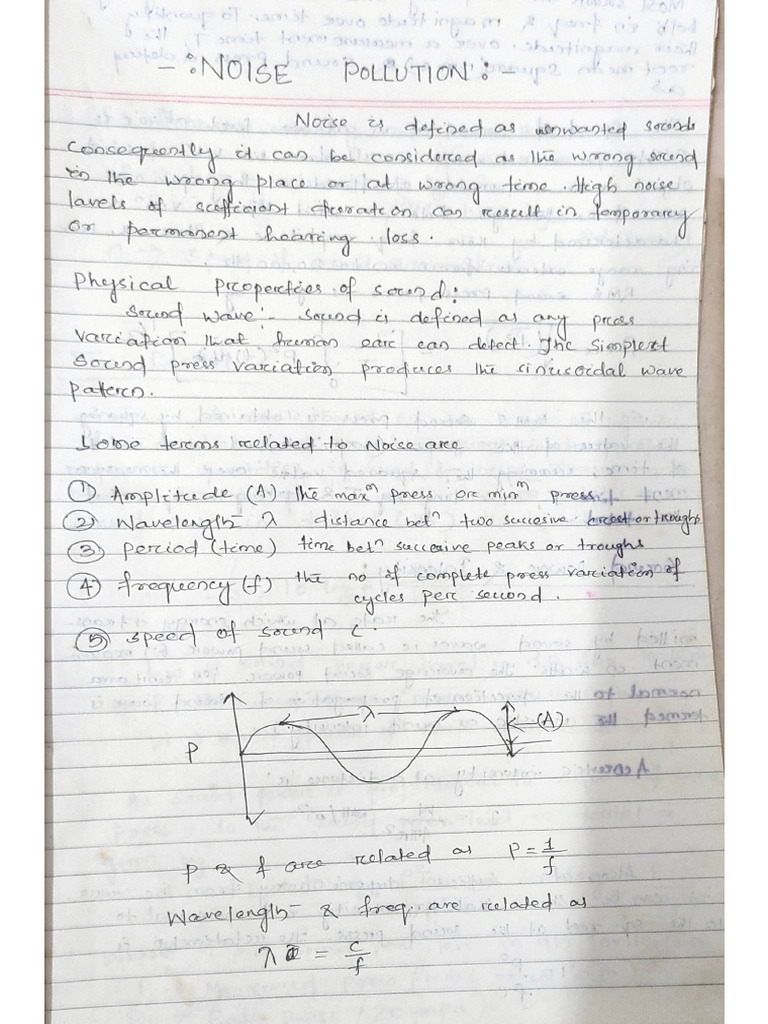 -:NOISE POLLUTION:-
Noise is defined as unwanted sounds
Consequently it can be considered as the wrong sound
in the wrong place or at wrong time. High noise
lavels of sufficient duration can result in temporary
or permanent hearing loss.
Physical properties of sound:
Sound wave:- Sound is defined as any press
variation that human ear can detect. The simplest
Sound press variation produces the sinusoidal wave
patern.
Some terms related to Noise are
① Amplitude (A) the maxᵐ press or minᵐ press.
② Wavelength λ distance betⁿ two succesive crest or troughs
③ period (time) time betⁿ succesive peaks or troughs
④ frequency (f) the no of complete press variation of
cycles per second.
⑤ speed of sound c.
λ
P
(A)
P & f are related as P = 1/f
Wavelength & freq. are related as
λ = c/f